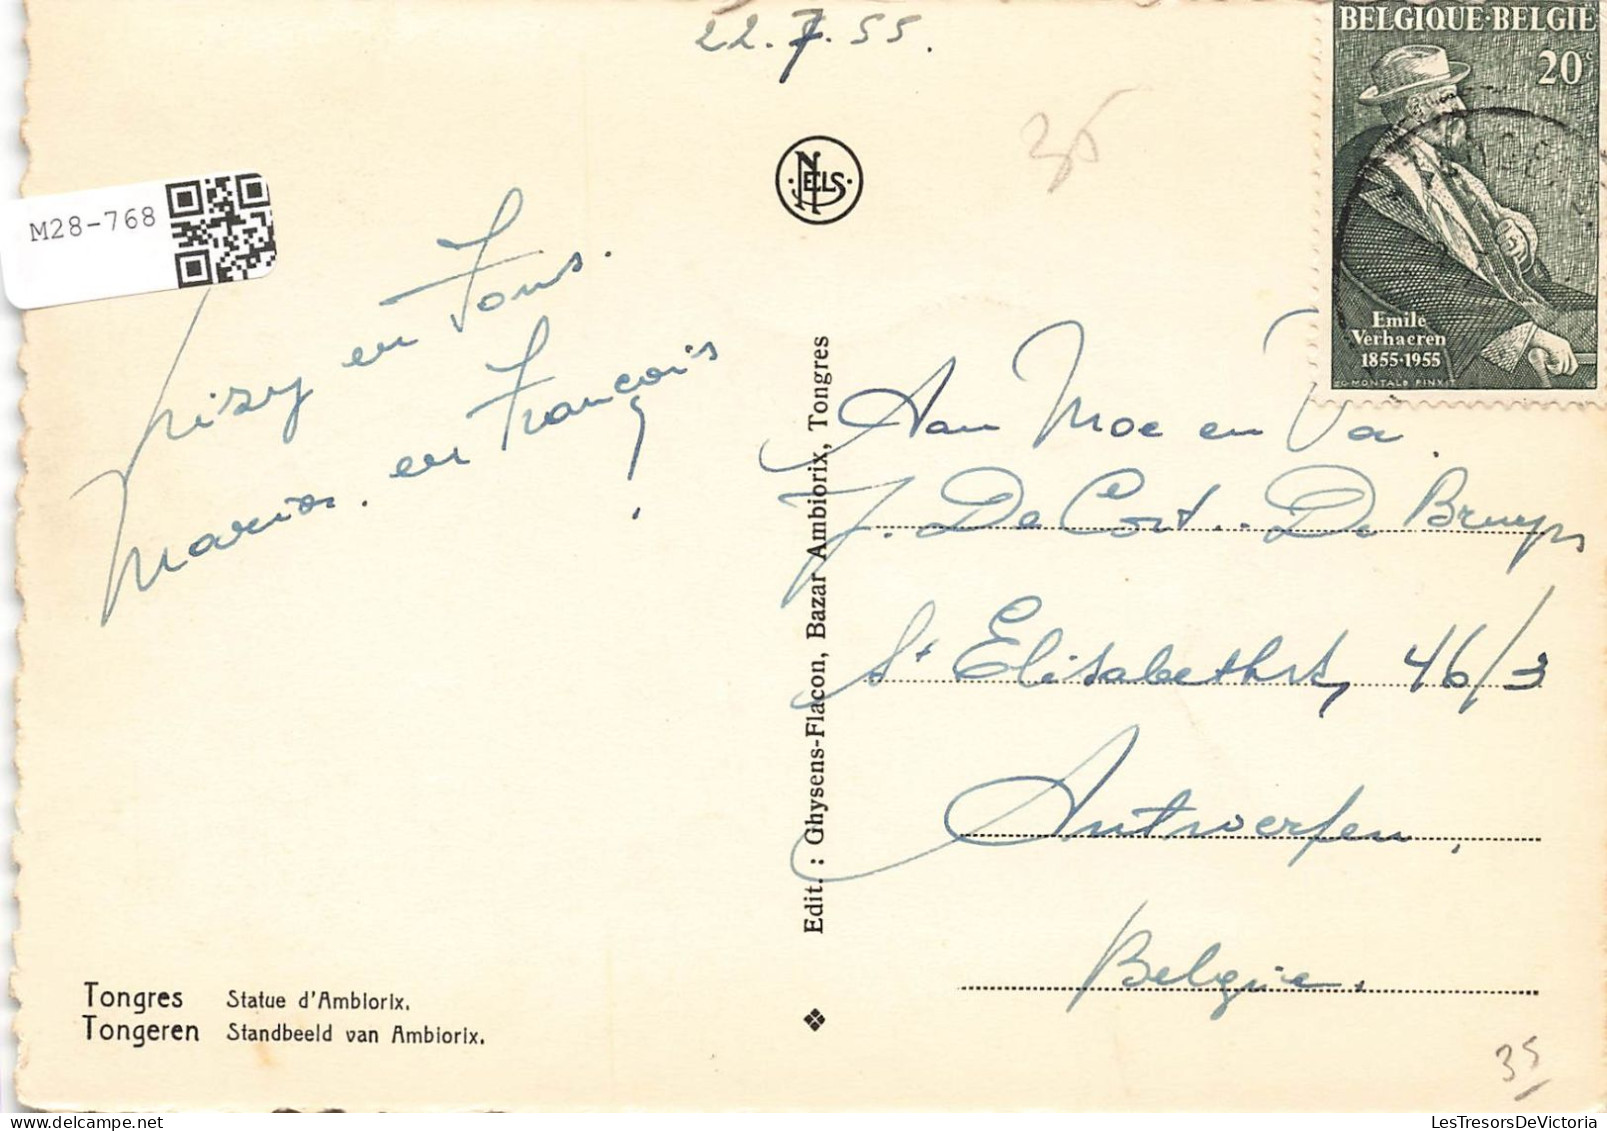 22.7.55.
35
BELGIQUE·BELGIË
20c
Emile
Verhaeren
1855·1955
G·MONTALD PINXIT
M28-768
NELS
Lizy en Fons.
Maria. en François
!
Edit. : Ghysens-Flacon, Bazar Ambiorix, Tongres
Aan Moe en Va.
J. De Cort.. De Bruyn
St Elisabethst, 46/3
Antwerpen,
Belgie.
Tongres Statue d'Ambiorix.
Tongeren Standbeeld van Ambiorix.
35
LesTresorsDeVictoria.com